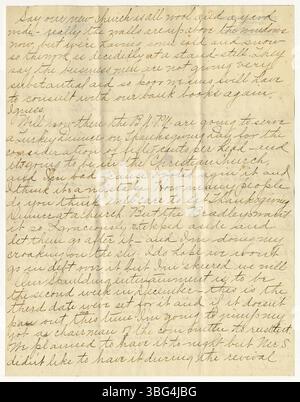 Say our new church is all wool and a yard
wide - really the walls are up above the windows
now, but we're having some cold and snow
so the work is decidedly at a stand-still. They
say the business men are not giving very
substantial aid so poor mens will have
to consult with our bank books again,
I guess.
Well now then the B.Y.P.U. are going to serve
a turkey dinner on Thanksgiving day for the
consideration of fifty cents per head - and
its going to be in the Christian Church,
and I'm mad cause I voted agin it and
I think it an outrage. How many people
do you think will care to eat Thanksgiving
Dinner at a church But the Bradleys want
it so, I graciously stepped aside and
let them go after it - and I'm doing my
croaking on the sly. I do hope we don't
go in debt over it but I'm skeered we will
Our Spaulding entertainment is to be
the second week in December - this is the
third date we've set for it and if it doesn't
pan out this time I'm going to jump my
job as chairman of the committee to
We planned to have it to night but Mr S
didn't like to have it during the revival
alamy
Image ID: 3BG4JBG
www.alamy.com